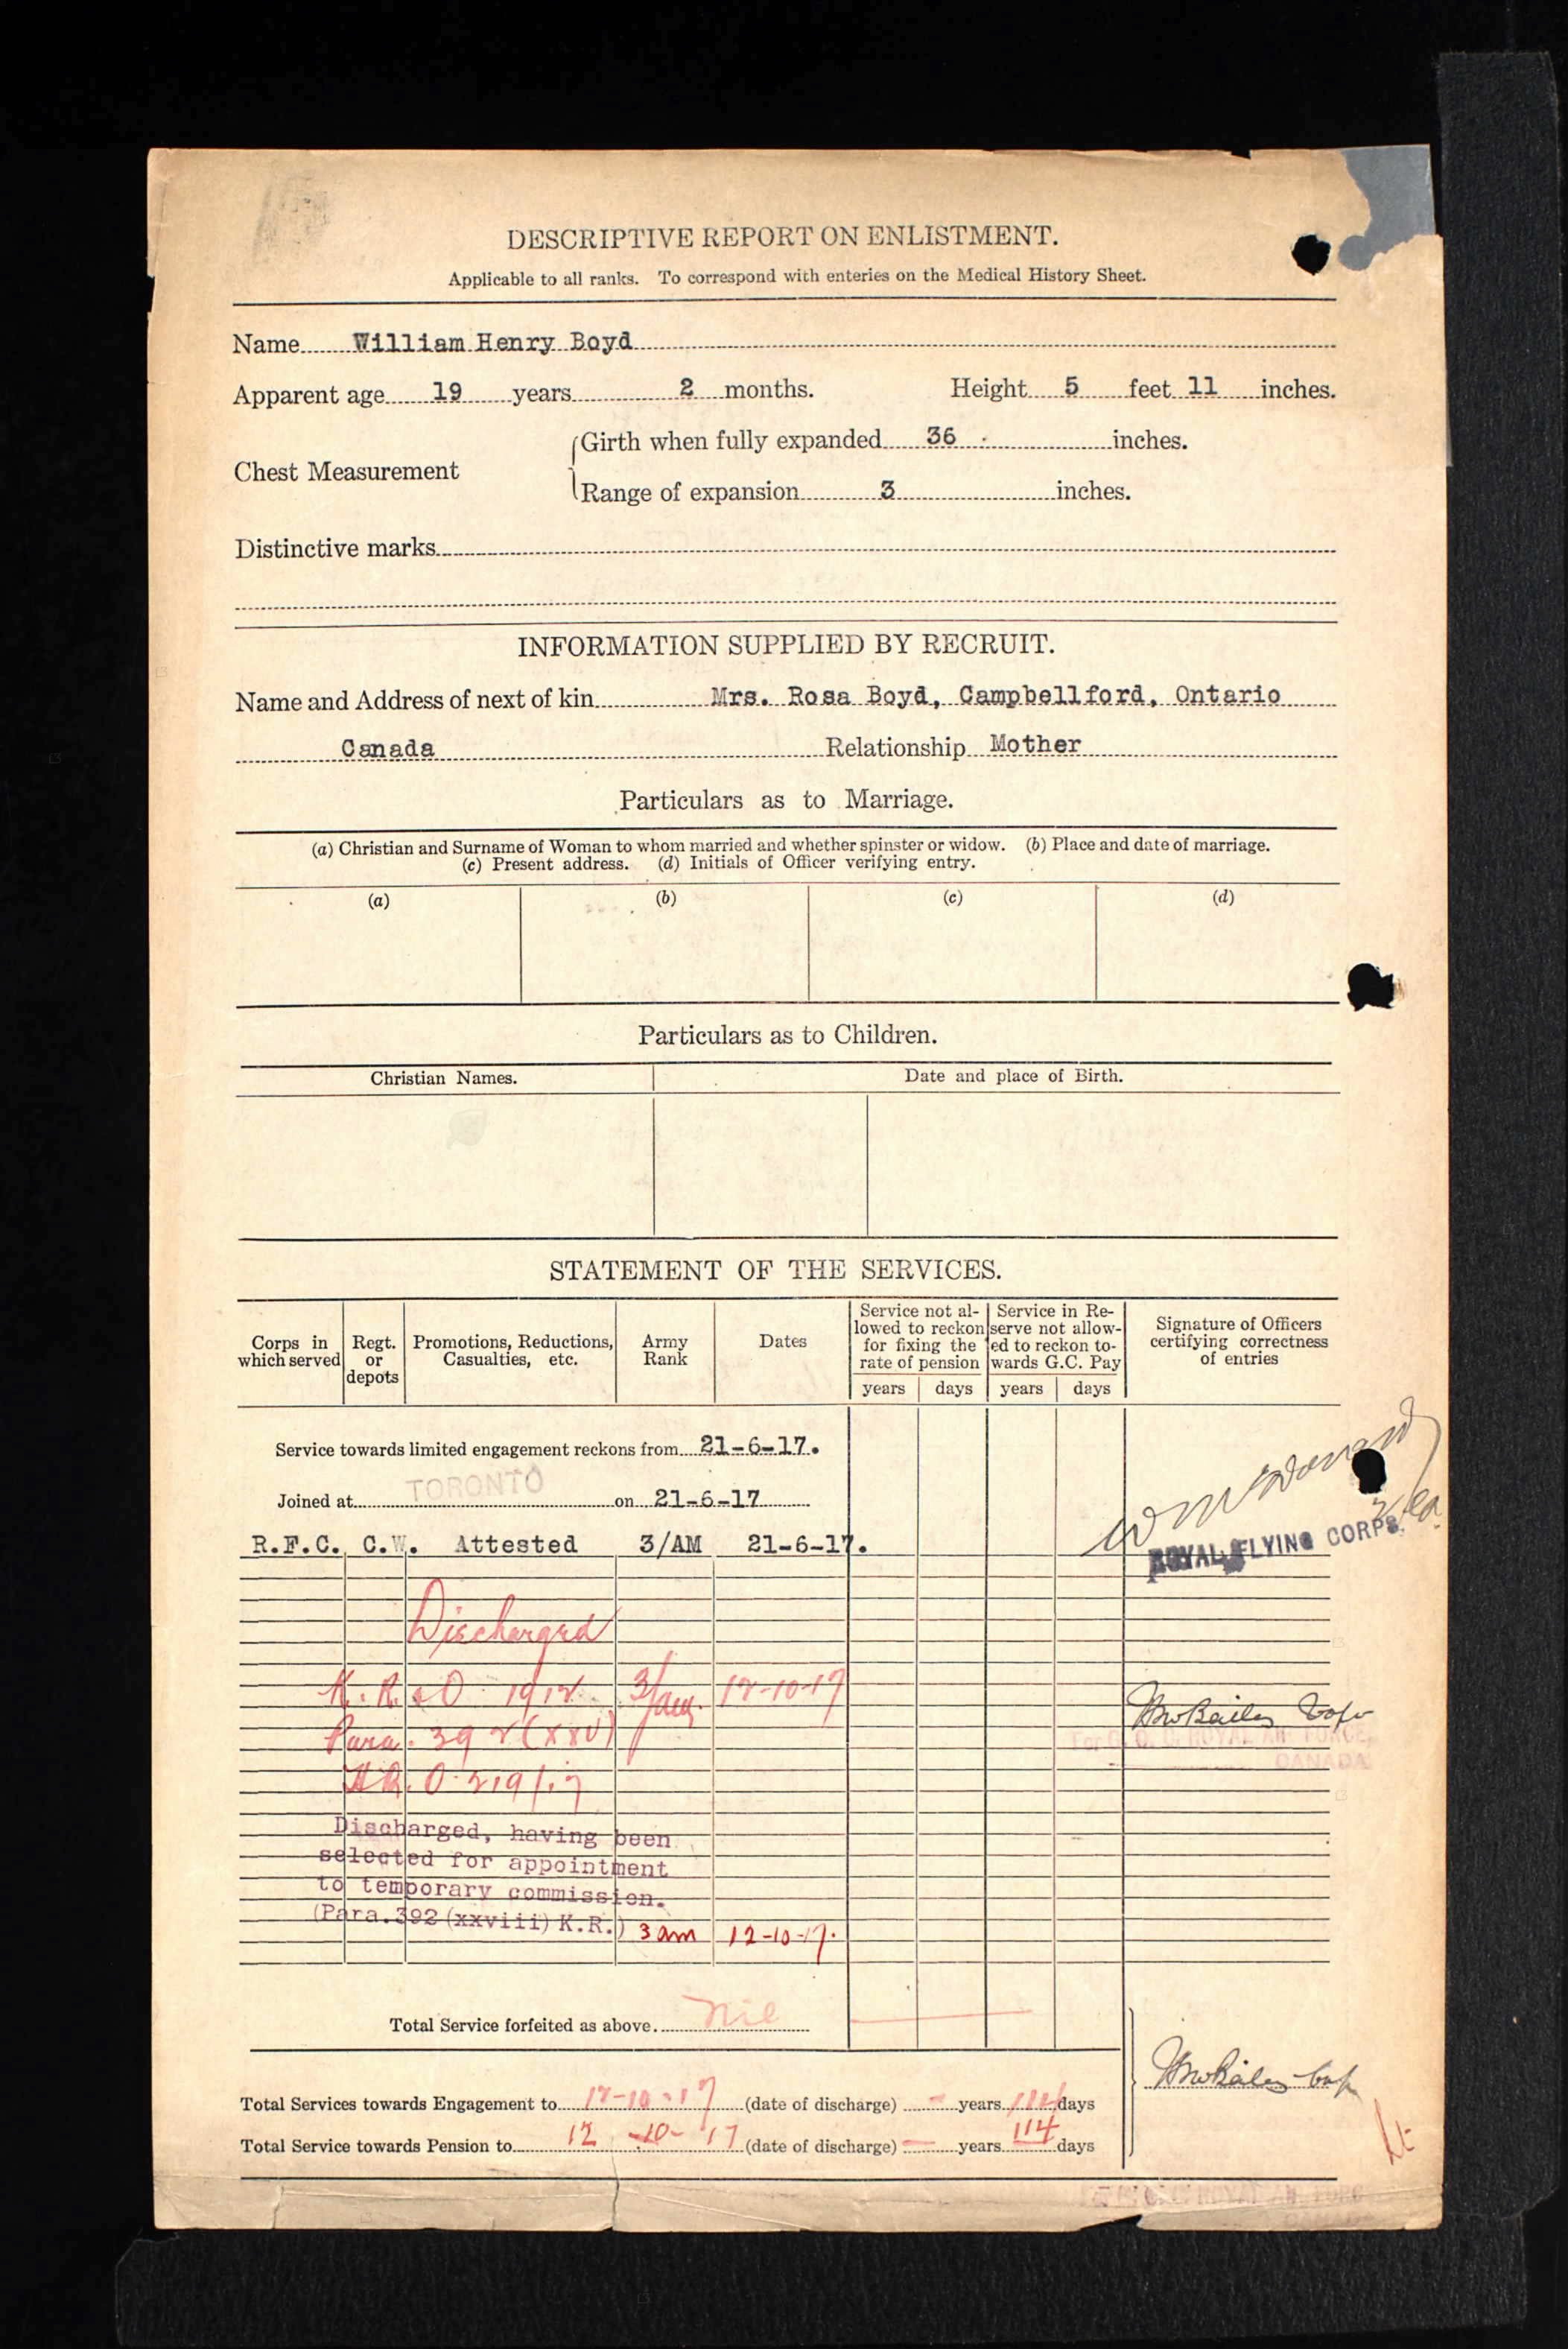 DESCRIPTIVE REPORT ON ENLISTMENT.
Applicable to all ranks. To correspond with enteries on the Medical History Sheet.
Name William Henry Boyd
Apparent age 19 years 2 months. Height 5 feet 11 inches.
Girth when fully expanded 36 inches.
Chest Measurement
Range of expansion 3 inches.
Distinctive marks
INFORMATION SUPPLIED BY RECRUIT.
Name and Address of next of kin Mrs. Rosa Boyd, Campbellford, Ontario
Canada Relationship Mother
Particulars as to Marriage.
(a) Christian and Surname of Woman to whom married and whether spinster or widow. (b) Place and date of marriage.
(c) Present address. (d) Initials of Officer verifying entry.
(a) (b) (c) (d)
Particulars as to Children.
Christian Names. Date and place of Birth.
STATEMENT OF THE SERVICES.
Corps in which served
Regt. or depots
Promotions, Reductions, Casualties, etc.
Army Rank
Dates
Service not al-
lowed to reckon
for fixing the
rate of pension
years days
Service in Re-
serve not allow-
ed to reckon to-
wards G.C. Pay
years days
Signature of Officers
certifying correctness
of entries
Service towards limited engagement reckons from 21-6-17.
Joined at TORONTO on 21-6-17
R.F.C. C.W. Attested 3/AM 21-6-17.
ROYAL FLYING CORPS.
Discharged
K.R. & O 1912 3/AM 12-10-17
Para. 392 (XXV)
H.Q. O 219/17
For G. O. C. ROYAL AIR FORCE,
CANADA
Discharged, having been
selected for appointment
to temporary commission.
(Para.392 (xxviii) K.R.) 3 am 12-10-17.
Total Service forfeited as above. nil
Total Services towards Engagement to 12-10-17 (date of discharge) - years 114 days
Total Service towards Pension to 12-10-17 (date of discharge) - years 114 days